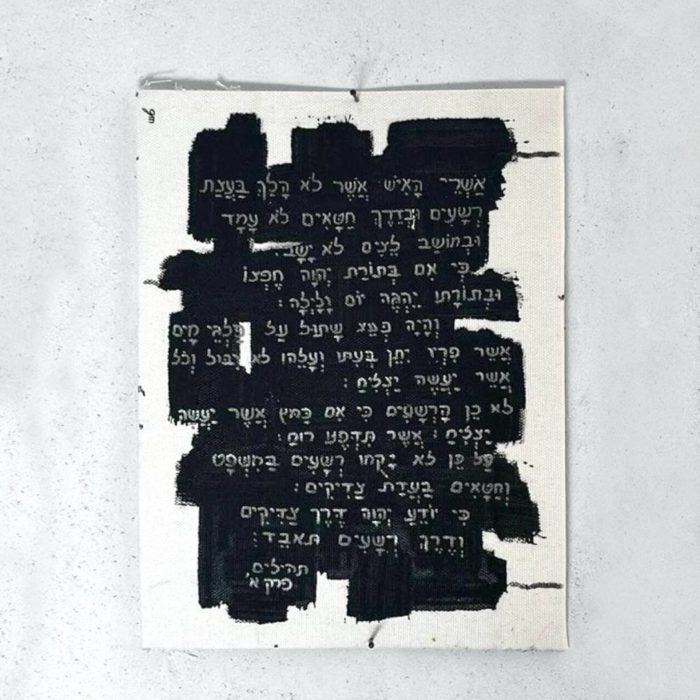 אַשְׁרֵי הָאִישׁ אֲשֶׁר לֹא הָלַךְ בַּעֲצַת
רְשָׁעִים וּבְדֶרֶךְ חַטָּאִים לֹא עָמָד
וּבְמוֹשַׁב לֵצִים לֹא יָשָׁב:
כִּי אִם בְּתוֹרַת יְהוָה חֶפְצוֹ
וּבְתוֹרָתוֹ יֶהְגֶּה יוֹם וָלָיְלָה:
וְהָיָה כְּעֵץ שָׁתוּל עַל פַּלְגֵי מָיִם
אֲשֶׁר פִּרְיוֹ יִתֵּן בְּעִתּוֹ וְעָלֵהוּ לֹא יִבּוֹל וְכֹל
אֲשֶׁר יַעֲשֶׂה יַצְלִיחַ:
לֹא כֵן הָרְשָׁעִים כִּי אִם כַּמֹּץ אֲשֶׁר יַעֲשֶׂה
יַצְלִיחַ: אֲשֶׁר תִּדְּפֶנּוּ רוּחַ:
עַל כֵּן לֹא יָקֻמוּ רְשָׁעִים בַּמִּשְׁפָּט
וְחַטָּאִים בַּעֲדַת צַדִּיקִים:
כִּי יוֹדֵעַ יְהוָה דֶּרֶךְ צַדִּיקִים
וְדֶרֶךְ רְשָׁעִים תֹּאבֵד:
תהילים
פרק א'